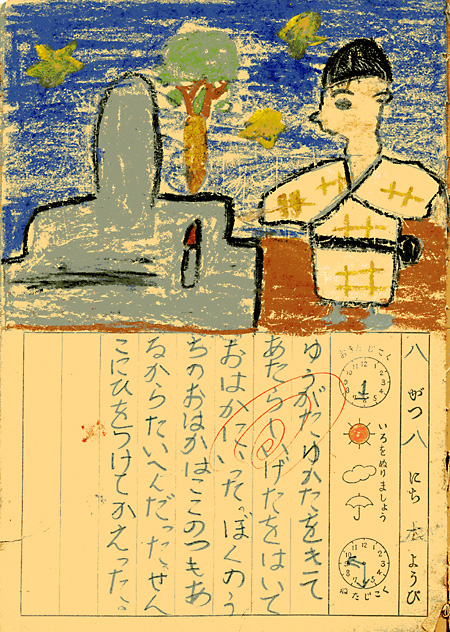 八 がつ 八 にち ようび
おきたじこく
いろをぬりましょう
ねたじこく
ゆうがたゆかたをきて
あたらしいげたをはいて
おはかにいった。ぼくのう
ちのおはかはここのつもあ
るからたいへんだった。せん
こにひをつけてかえった。